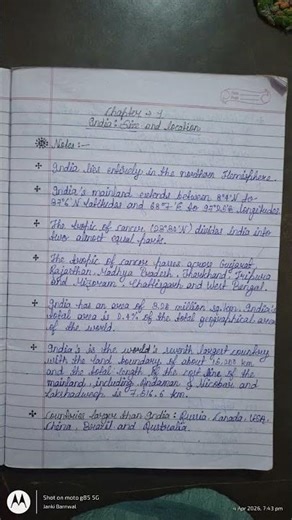 Chapter → 1
India: Size and location
Notes:-
India lies entirely in the northern Hemisphere.
India's mainland extends between 8°4'N to
37°6'N latitudes and 68°7'E to longitudes.
The tropic of cancer (23°30'N) divides india into
two almost equal parts.
The tropic of cancer passes across Gujarat,
Rajasthan, Madhya Pradesh, Jharkhand, Tripura
and Mizoram, Chhattisgarh and West Bengal.
India has an area of 3.28 million sq.km. India's
total area is 2.4% of the total geographical area
of the world.
India's is the world's seventh largest country
with the land boundary of about 15,200 km
and the total length of the cost line of the
mainland, including Andaman & Nicobar and
Lakshadweep is 7,516.6 km.
Countries larger than India: Russia, Canada, USA,
China, Brazil and Australia.
Shot on moto g85 5G
Janki Barnwal
Apr 2026, 7:43 pm